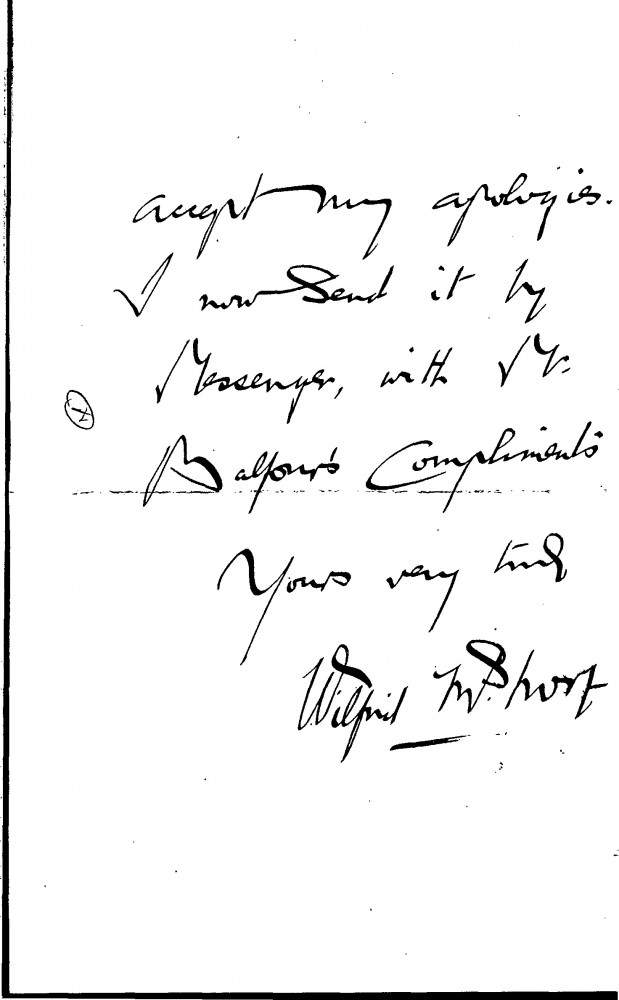 accept my apologies.
I now send it by
Messenger, with Mr.
Balfour's Compliments
Yours very truly
Wilfrid M. Short